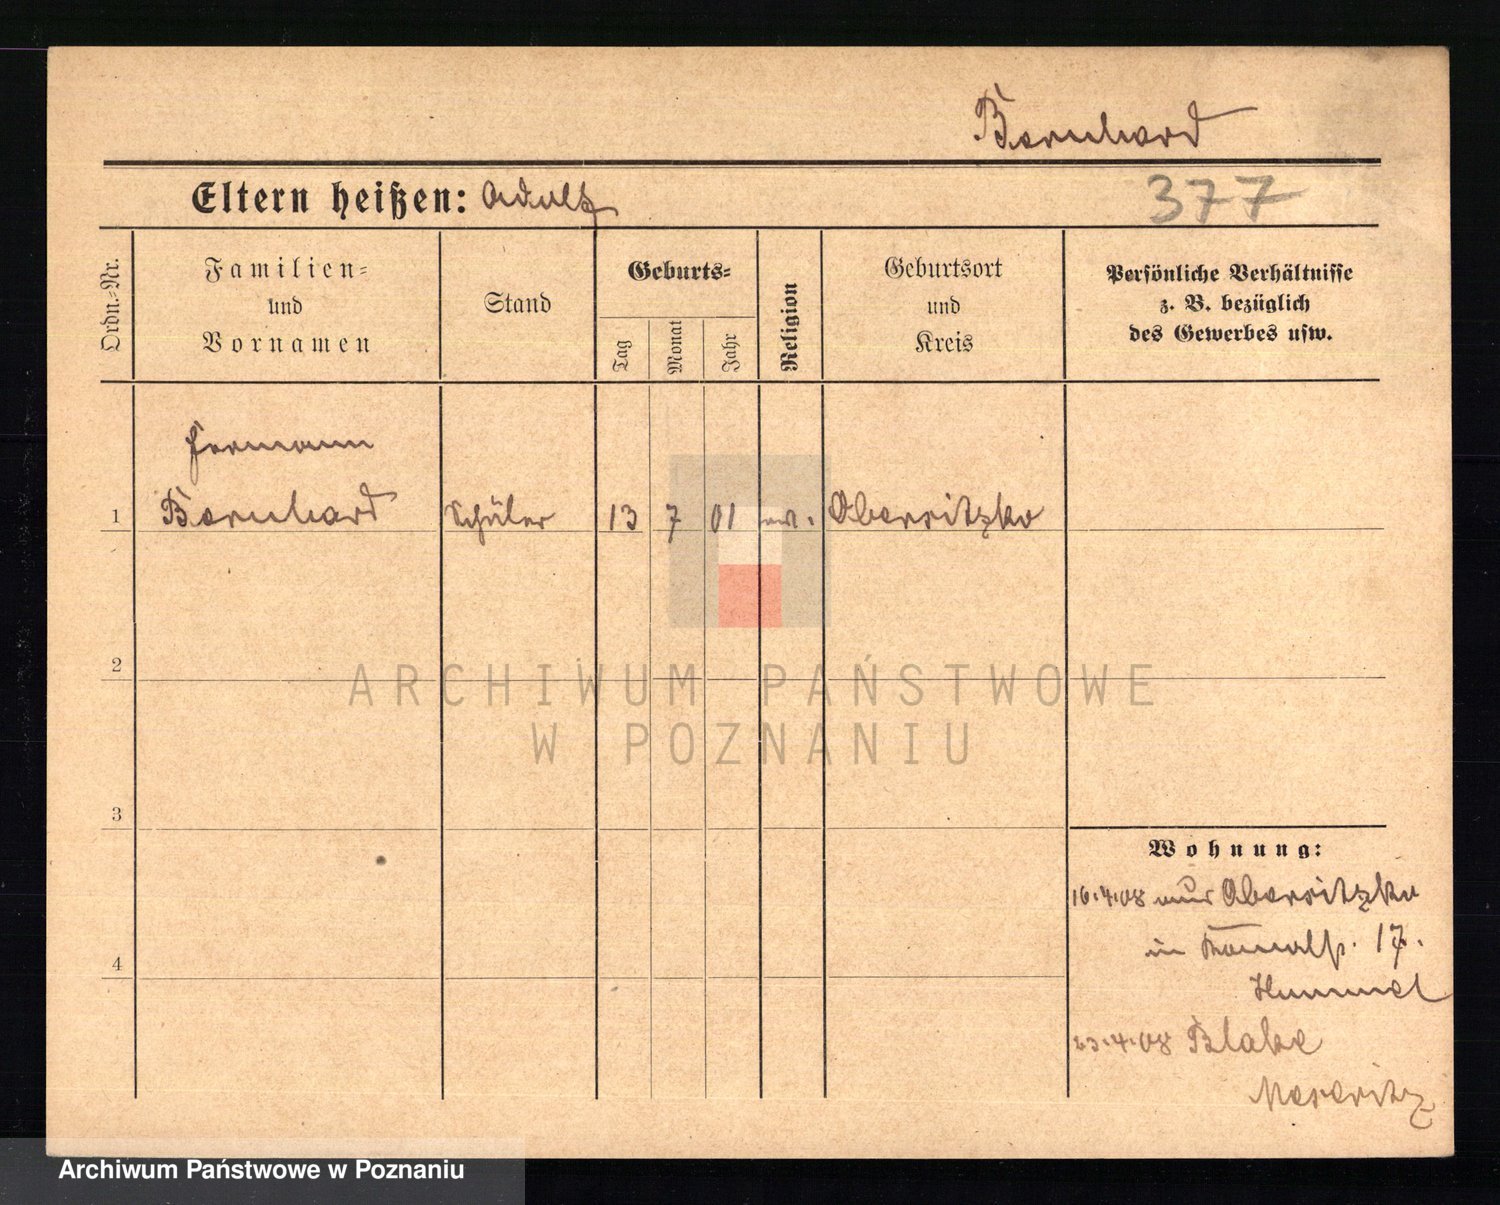 Bernhard
Eltern heißen: Adolf
377
Ordn.=Nr.
Familien=
und
Vornamen
Stand
Geburts=
Tag
Monat
Jahr
Religion
Geburtsort
und
Kreis
Persönliche Verhältnisse
z. B. bezüglich
des Gewerbes usw.
Hermann
1 Bernhard Schüler 13 7 01 ev. Oberritzko
2
3
4
Wohnung:
16.4.08 aus Oberritzko
in 17.
Hummel
23.4.08
Meseritz
ARCHIWUM PAŃSTWOWE
W POZNANIU
Archiwum Państwowe w Poznaniu